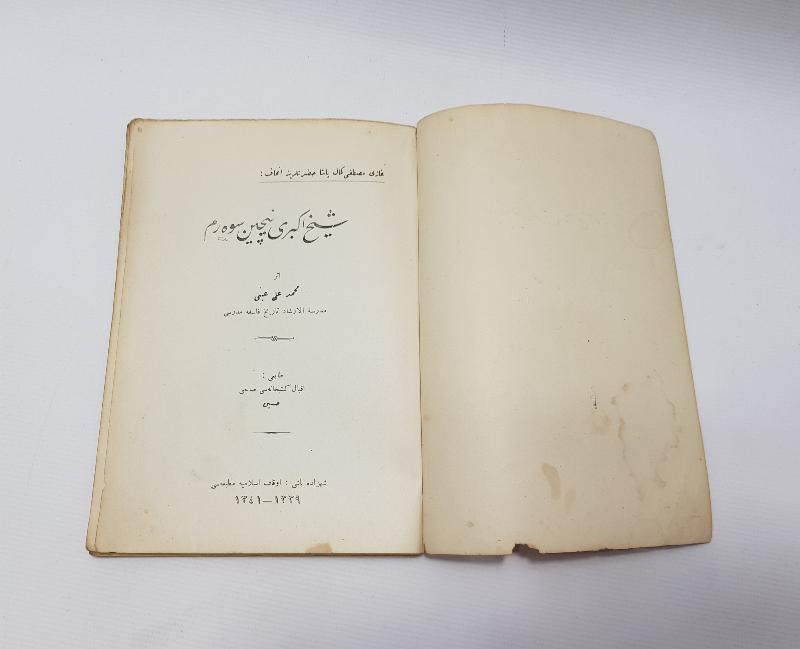 غازی مصطفی کمال پاشا حضرتلرینه اتحاف :
شیخ اکبری نیچین سوه رم
اثر
محمد علی عینی
مدرسة الارشاد تاریخ فلسفه مدرسی
طابعی :
اقبال کتبخانه‌سی صاحبی
حسین
شهزاده باشی : اوقاف اسلامیه مطبعه‌سی
١٣٣٩—١٣٤١